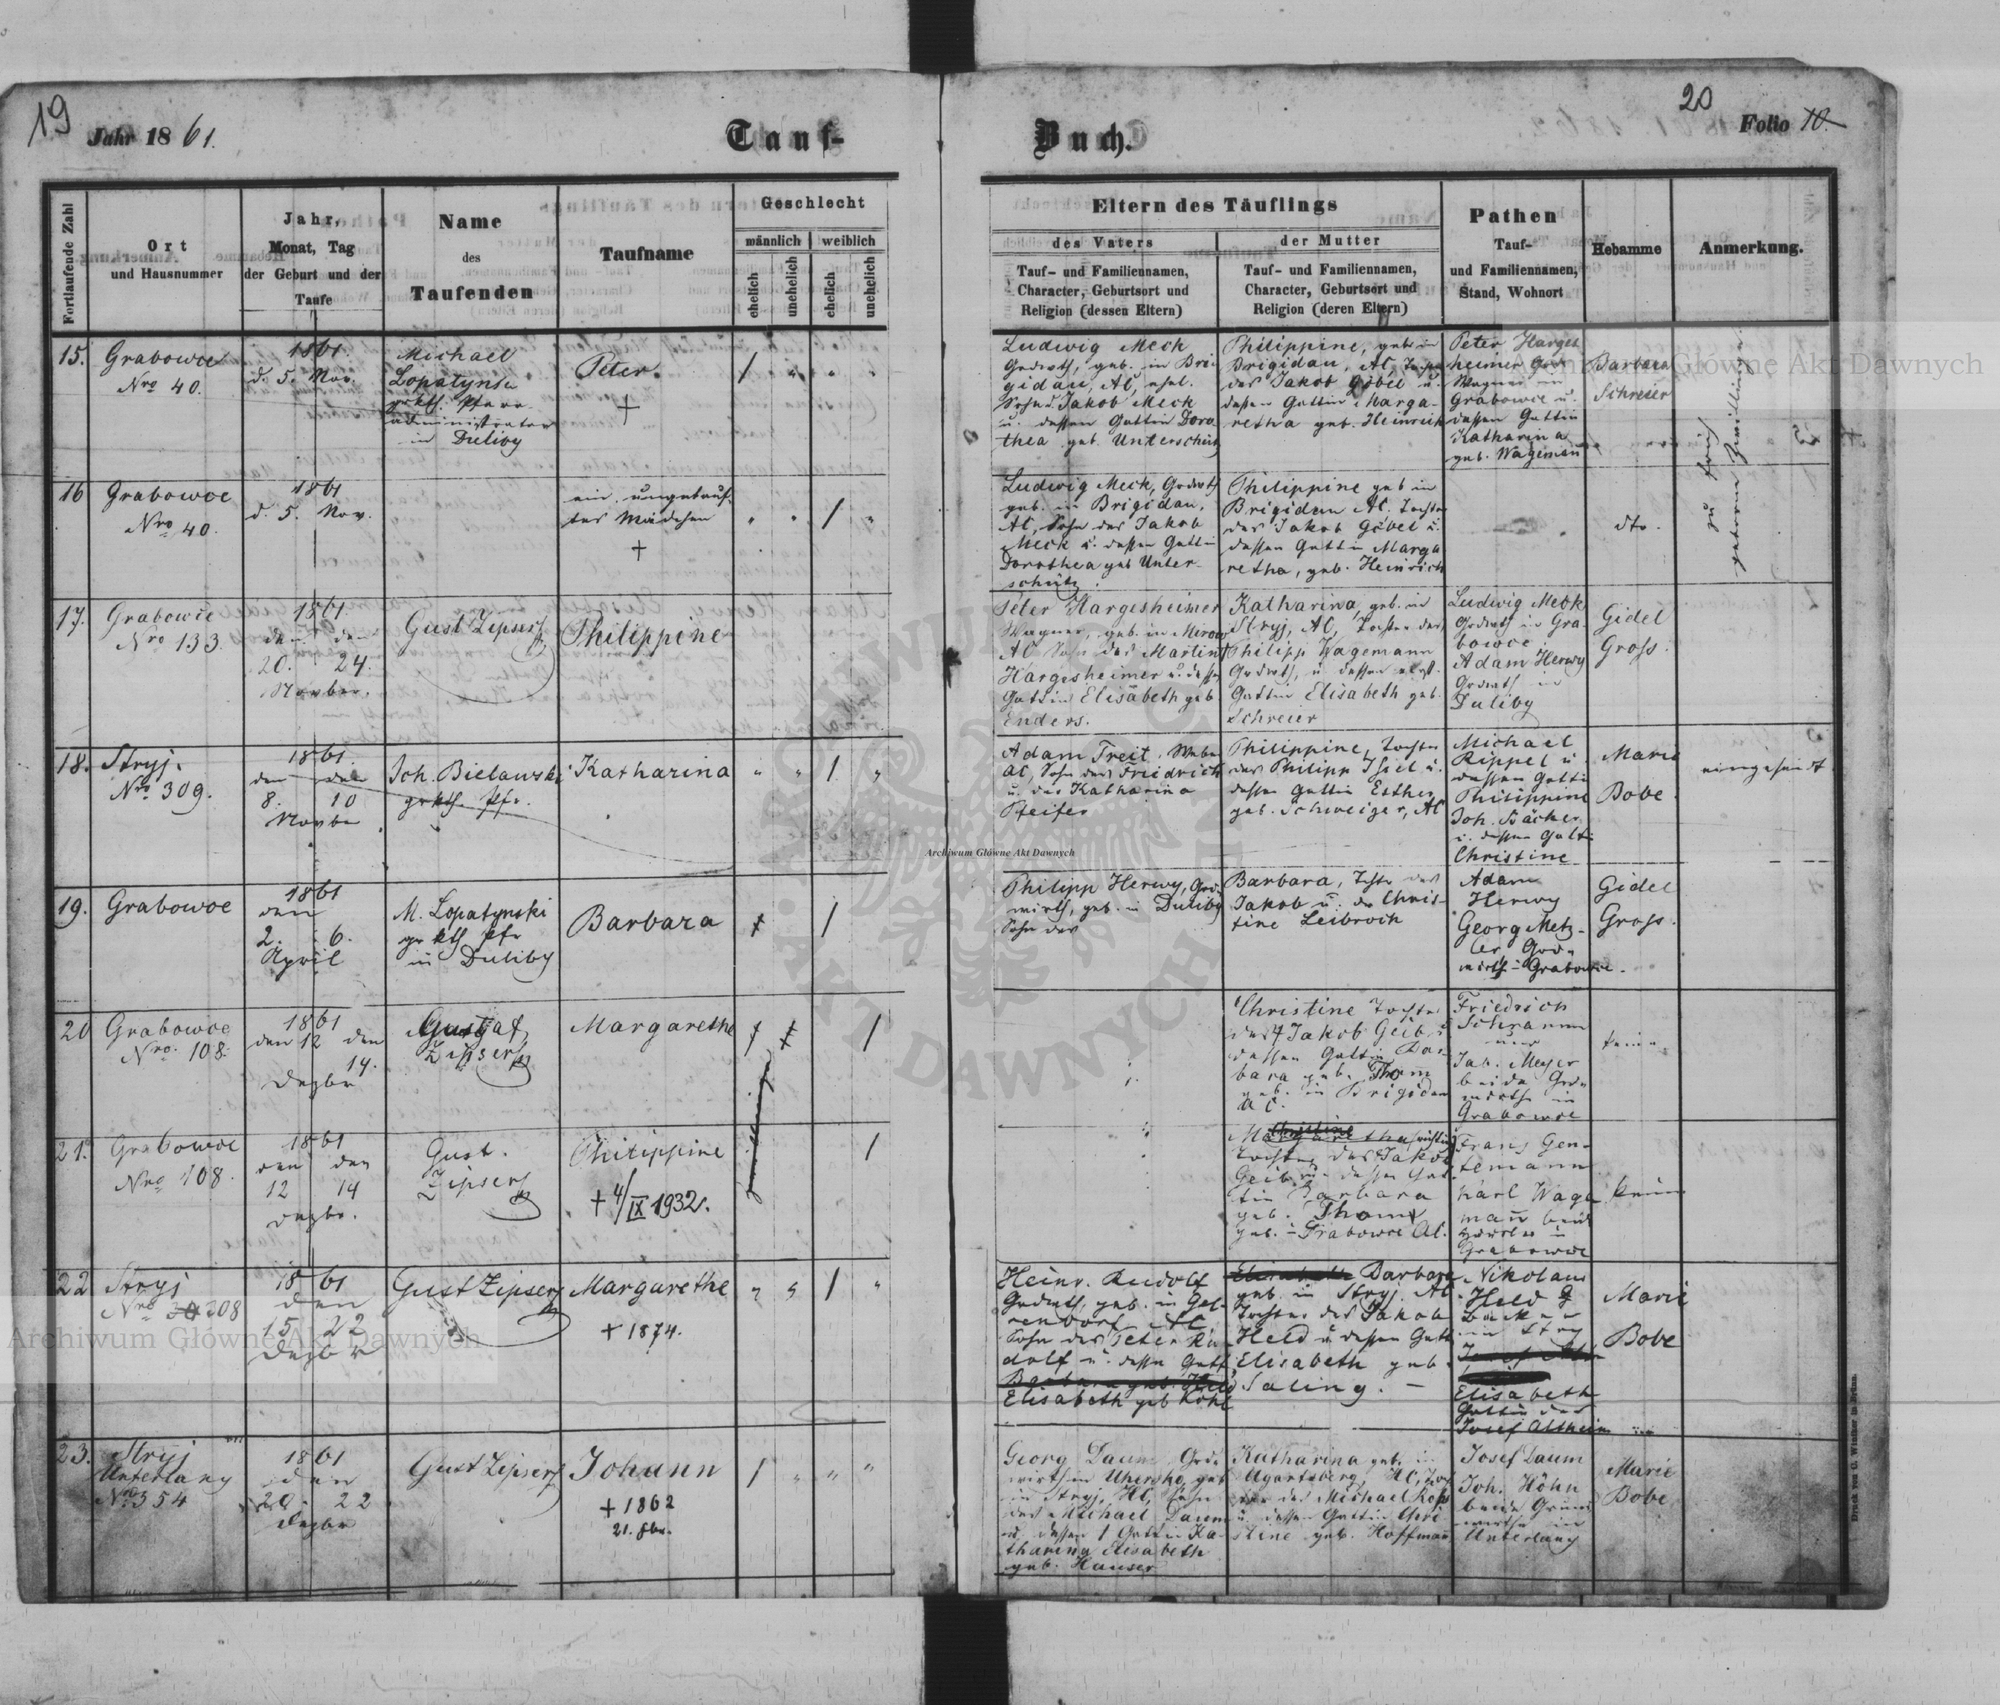 19
Jahr 1861.
Tauf-
Buch.
20
Folio 10.
Fortlaufende Zahl
Ort
und Hausnummer
Jahr,
Monat, Tag
der Geburt und der
Taufe
Name
des
Taufenden
Taufname
Geschlecht
männlich
weiblich
ehelich
unehelich
ehelich
unehelich
Eltern des Täuflings
des Vaters
Tauf- und Familiennamen,
Character, Geburtsort und
Religion (dessen Eltern)
der Mutter
Tauf- und Familiennamen,
Character, Geburtsort und
Religion (deren Eltern)
Pathen
Tauf-
und Familiennamen,
Stand, Wohnort
Hebamme
Anmerkung.
15.
Grabowce
Nro 40.
1861.
d. 5. Nov.
Michael
Lopatynsk
grkth. Pfarr-
administrator
in Duliby
Peter.
†
Ludwig Meck
geb. in Bri-
gidau, AC, ehel.
Sohn d. Jakob Meck
u. dessen Gattin Doro-
thea geb. Unterschütz
Philippine, geb. in
Brigidau, AC, Tochter
des Jakob Göbel u.
dessen Gattin Marga-
retha geb. Heinrich
Peter Harges
heimer
Wagner in
Grabowce u.
dessen Gattin
Katharina
geb. Wagemann
Barbara
Schreier
zu früh
geborene Zwillinge
16
Grabowce
Nro 40.
1861
d. 5. Nov.
ein ungetauf-
tes Mädchen
†
Ludwig Meck,
geb. in Brigidau,
AC, Sohn des Jakob
Meck u. dessen Gattin
Dorothea geb Unter-
schütz
Philippine geb in
Brigidau AC. Tochter
des Jakob Göbel u.
dessen Gattin Marga
retha, geb. Heinrich
dto.
17.
Grabowce
Nro 133.
1861
den den
20. 24.
Novber.
Gust Zipser
Philippine
Peter Hargesheimer
Wagner, geb. in
AC Sohn des Martin
Hargesheimer u. dessen
Gattin Elisabeth geb
Enders.
Katharina, geb. in
Stryj, AC, Tochter des
Philipp Wagemann
u. dessen
Gattin Elisabeth geb.
Schreier
Ludwig Meck
in Gra-
bowce
Adam Herwy
in
Duliby
Gidel
Gross.
18.
Stryj.
Nro 309.
1861.
den den
8. 10
Novbe
Joh. Bielawski
grkth. Pfr.
Katharina
Adam Freit, Webe
AC, Sohn des Friedrich
u. der Katharina
Pfeifer
Philippine, Tochter
des Philipp Isiel u.
dessen Gattin Esther
geb. Schweiger, AC
Michael
Rippel u
dessen Gattin
Philippine
Joh. Bäcker
u. dessen Gattin
Christine
Marie
Bobe.
eingesandt
19.
Grabowce
1861
den
2. 6.
April
M. Lopatynski
gr kth Pfr
in Duliby
Barbara
Philipp Herwy, Grd-
wirth, geb. in Duliby
Sohn des
Barbara, Tochter des
Jakob u. der Chris-
tine Leibrock
Adam
Herwy
Georg Metz-
ler Grd-
wirth - Grabowce.
Gidel
Gross.
20
Grabowce
Nro. 108.
1861
den 12 den
14.
Dezbr
Gustaf
Zipser
Margarethe
Zwillinge
Christine Tochter
des † Jakob Geib u
dessen Gattin Bar-
bara geb. Thom
geb. in Brigidau
AC.
Friedrich
Schramm
und
Jak. Meyer
beide Grd-
wirthe in
Grabowce
keine
21.
Grabowce
Nro 108.
1861
den den
12 14
Dezbr.
Gust.
Zipser
Philippine
† 4/IX 1932.
Christine
Margaretha
Tochter des Jakob
Geib u. dessen Gat-
tin Barbara
geb. Thom
geb. - Grabowce AC.
Franz Gen-
temann
Karl Waga
mann beide
in
Grabowce
keine
22
Stryj
Nro 308
1861
den
15. 22
Dezbr
Gust Zipser
Margarethe
† 1874.
Heinr. Rudolf
Grdwth, geb. in Gel-
sendorf AC
Sohn des Peter Ru
dolf u. dessen Gatt
Barbara geb. Held
Elisabeth geb Köhl
Elisabeth Barbara
geb. in Stryj AC
Tochter des Jakob
Held u dessen Gatt
Elisabeth geb.
Saling. -
Nikolaus
Held
Bäcker
in Stry
Elisabeth
Gattin des
Josef Altheim
Marie
Bobe
23.
Stryj
Unterlany
No 354
1861
den
20. 22
Dezbr
Gust Zipser
Johann
† 1862
21. Fbr.
Georg Daum Grd-
wirth in Uhersko, geb
in Stryj, HC, Sohn
des Michael Daum
u. dessen Gattin Ka-
tharina Elisabeth
geb. Hauser
Katharina geb. in
Ugartsberg, HC, Toch
ter des Michael Kops
u. dessen Gattin Chri-
stine geb. Hoffmann
Josef Daum
Joh. Höhn
beide Grund
wirthe in
Unterlany
Marie
Bobe
Druck von C. Winiker in Brünn.
Archiwum Główne Akt Dawnych
Archiwum Główne Akt Dawnych
Archiwum Główne Akt Dawnych
ARCHIWUM GŁÓWNE
AKT DAWNYCH